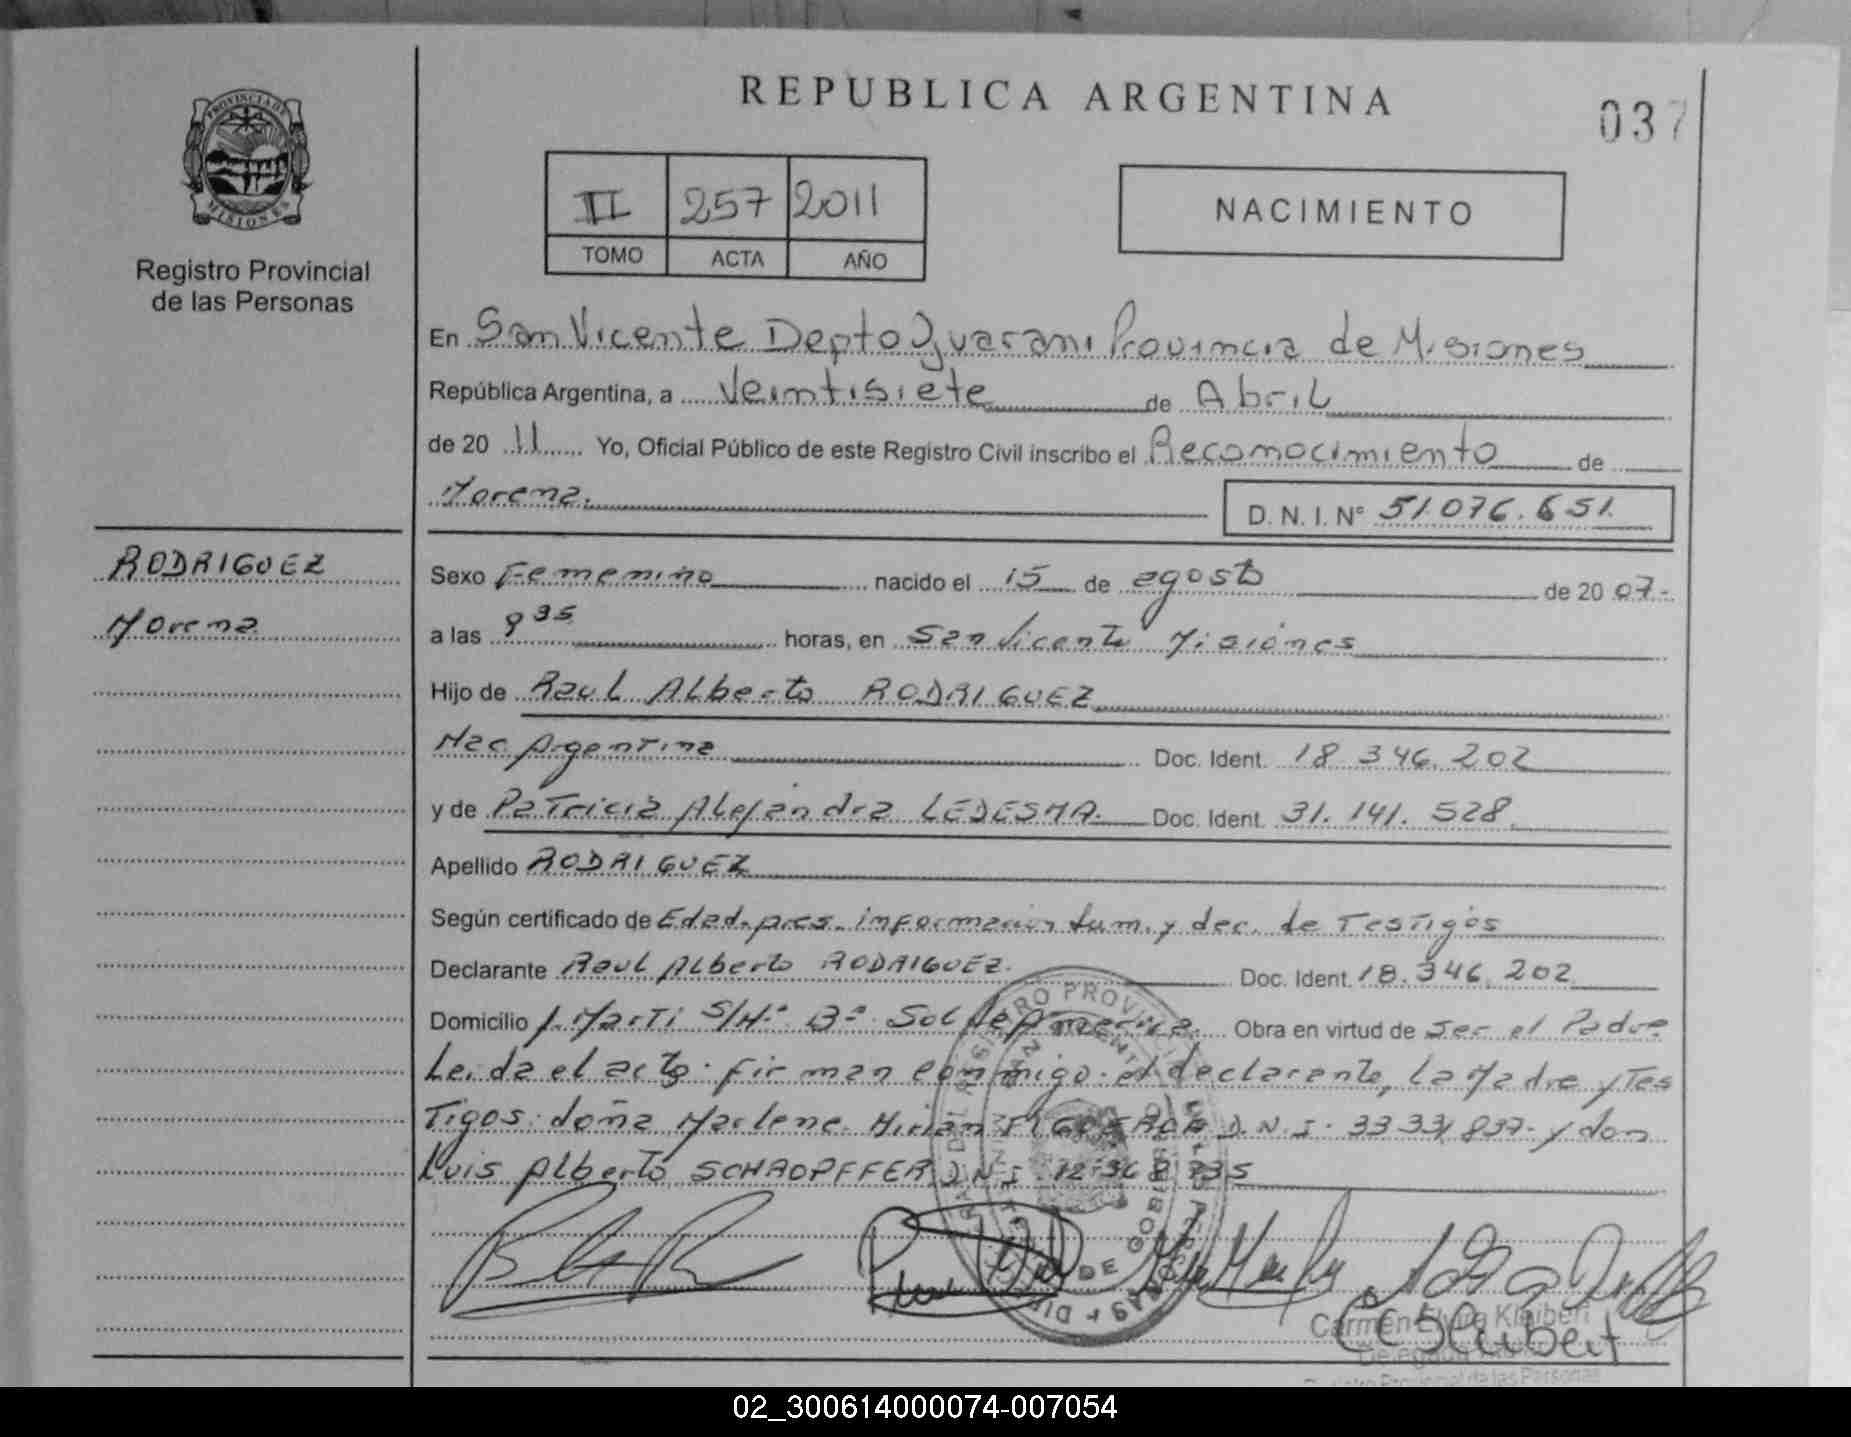 REPUBLICA ARGENTINA
037
PROVINCIA DE
MISIONES
Registro Provincial
de las Personas
II 257 2011
TOMO ACTA AÑO
NACIMIENTO
En San Vicente Depto Guarani Provincia de Misiones
República Argentina, a Veintisiete de Abril
de 20 11 Yo, Oficial Público de este Registro Civil inscribo el Reconocimiento de
Morena.
D. N. I. Nº 51.076.651.
RODRIGUEZ
Morena
Sexo Femenino nacido el 15 de agosto de 20 07-
a las 9 35 horas, en San Vicente Misiones
Hijo de Raul Alberto RODRIGUEZ
Nac. Argentina Doc. Ident. 18.346.202
y de Patricia Alejandra LEDESMA. Doc. Ident. 31.141.528
Apellido RODRIGUEZ
Según certificado de Edad. pres. informacion sum. y dec. de Testigos
Declarante Raul Alberto RODRIGUEZ. Doc. Ident. 18.346.202
Domicilio J. Marti S/Nº Bº Sol de America. Obra en virtud de Ser el Padre
Leida el acta. firman conmigo. el declarante, la Madre y Tes
Tigos: doña Marlene Mirian D.N.I. 33331837- y don
Luis Alberto SCHAOPFFER D.N.I. 12 368 735
Carmen Elvira Klaibert
Registro Provincial de las Personas
02_300614000074-007054